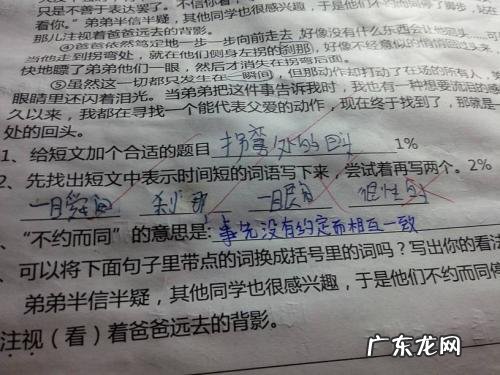 只是不善于表达罢了。不信你看
看你。”弟弟半信半疑，其他同学也很感兴趣，于是他们不约而同停了脚步，站在
那儿注视着爸爸远去的背影。
④爸爸依然笃定地一步一步向前走去，好像没有什么东西会让他回头……可
当他走到拐弯处，就在他们侧身左拐的刹那，好像不经意似的悄悄回过头来
快地瞟了弟弟他们一眼，然后才消失在拐弯后面。
⑤虽然这一切都只发生在一瞬间，但那动作却打动了在场的所有人，
眼睛里还闪着泪光。当弟弟把这件事告诉我时，我也有一种想要流泪的感
久以来，我都在寻找一个能代表父爱的动作，现在终于找到了，那就是
处的回头。
1、给短文加个合适的题目 拐弯处的回头 1%
2、先找出短文中表示时间短的词语写下来，尝试着再写两个。2%
一瞬间 刹那 一眨间
、“不约而同”的意思是: 事先没有约定而相互一致
、可以将下面句子里带点的词换成括号里的词吗？写出你的看法
弟弟半信半疑，其他同学也很感兴趣，于是他们不约而同停
注视（看）着爸爸远去的背影。
广东龙网